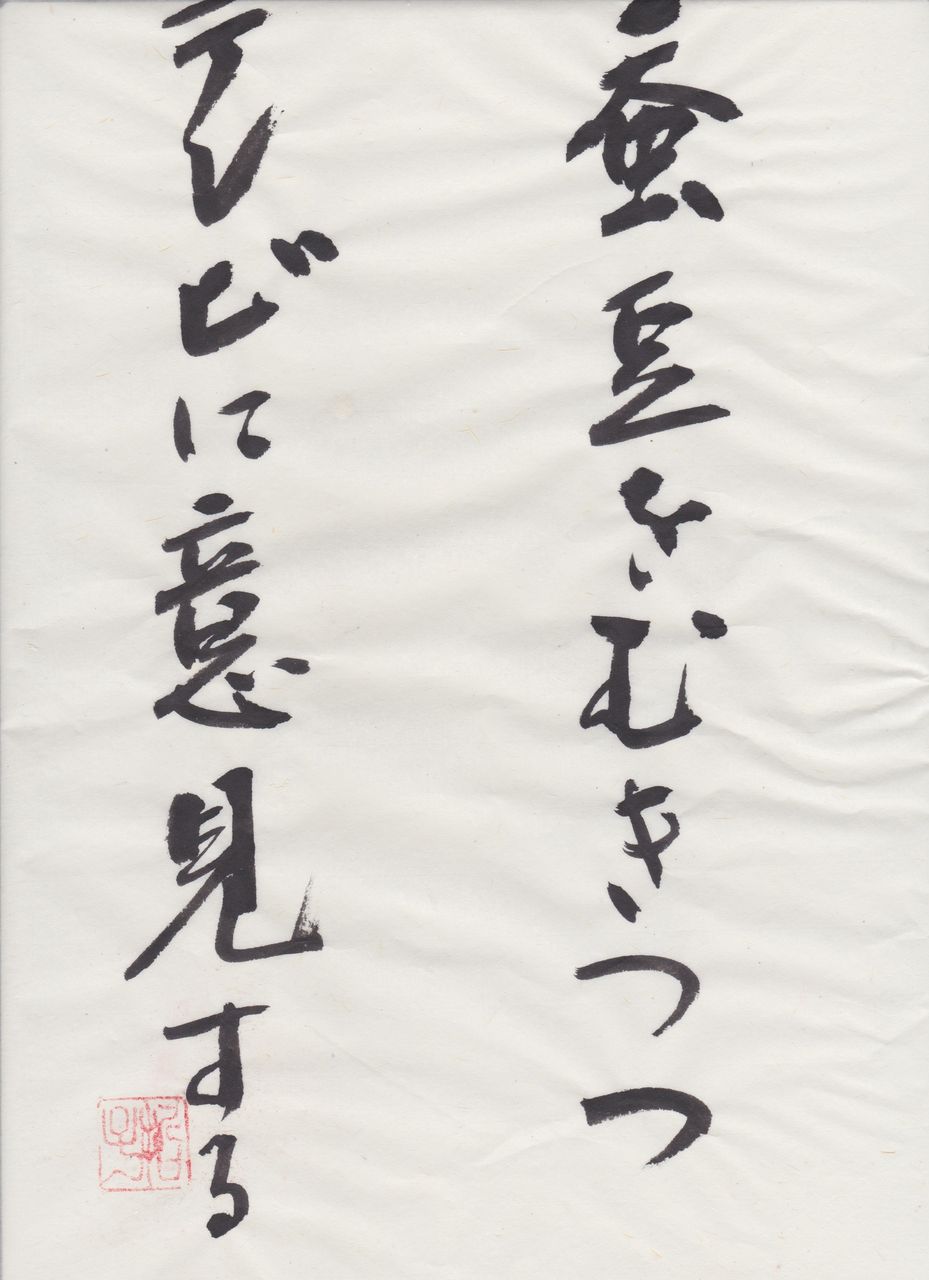 蚕豆をむきつつ
テレビに意見する